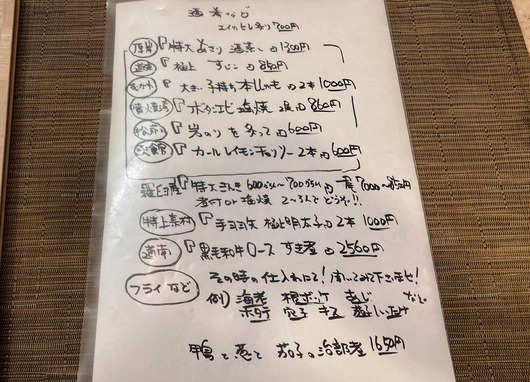 酒肴など
エイのヒレ炙り 700円
厚岸 『特大 あさり 酒蒸し 1300円
道南 『極上 すじこ 850円
むかわ 『大きい 子持ち本ししゃも 2本 1000円
噴火湾 『ボタンエビ 塩焼 2尾 860円
松前 『岩のり を 炙って 600円
函館 『カールレイモンチョリソー 2本 600円
羅臼産 『特大きんき 600g 〜 700g 一尾 7000〜8500円
煮付 or 塩焼 2〜3人でどうぞ!!
特上素材 『手ヨリ矢 極上明太子 2本 1000円
道南 『黒毛和牛ロース すき煮 2560円
フライなど その時の仕入れにて! 聞いてみて下さいませ!
例) 海老 根ボッケ あじ など
ホタテ 穴子 キス
鴨と葱と 茄子の治部煮 1650円